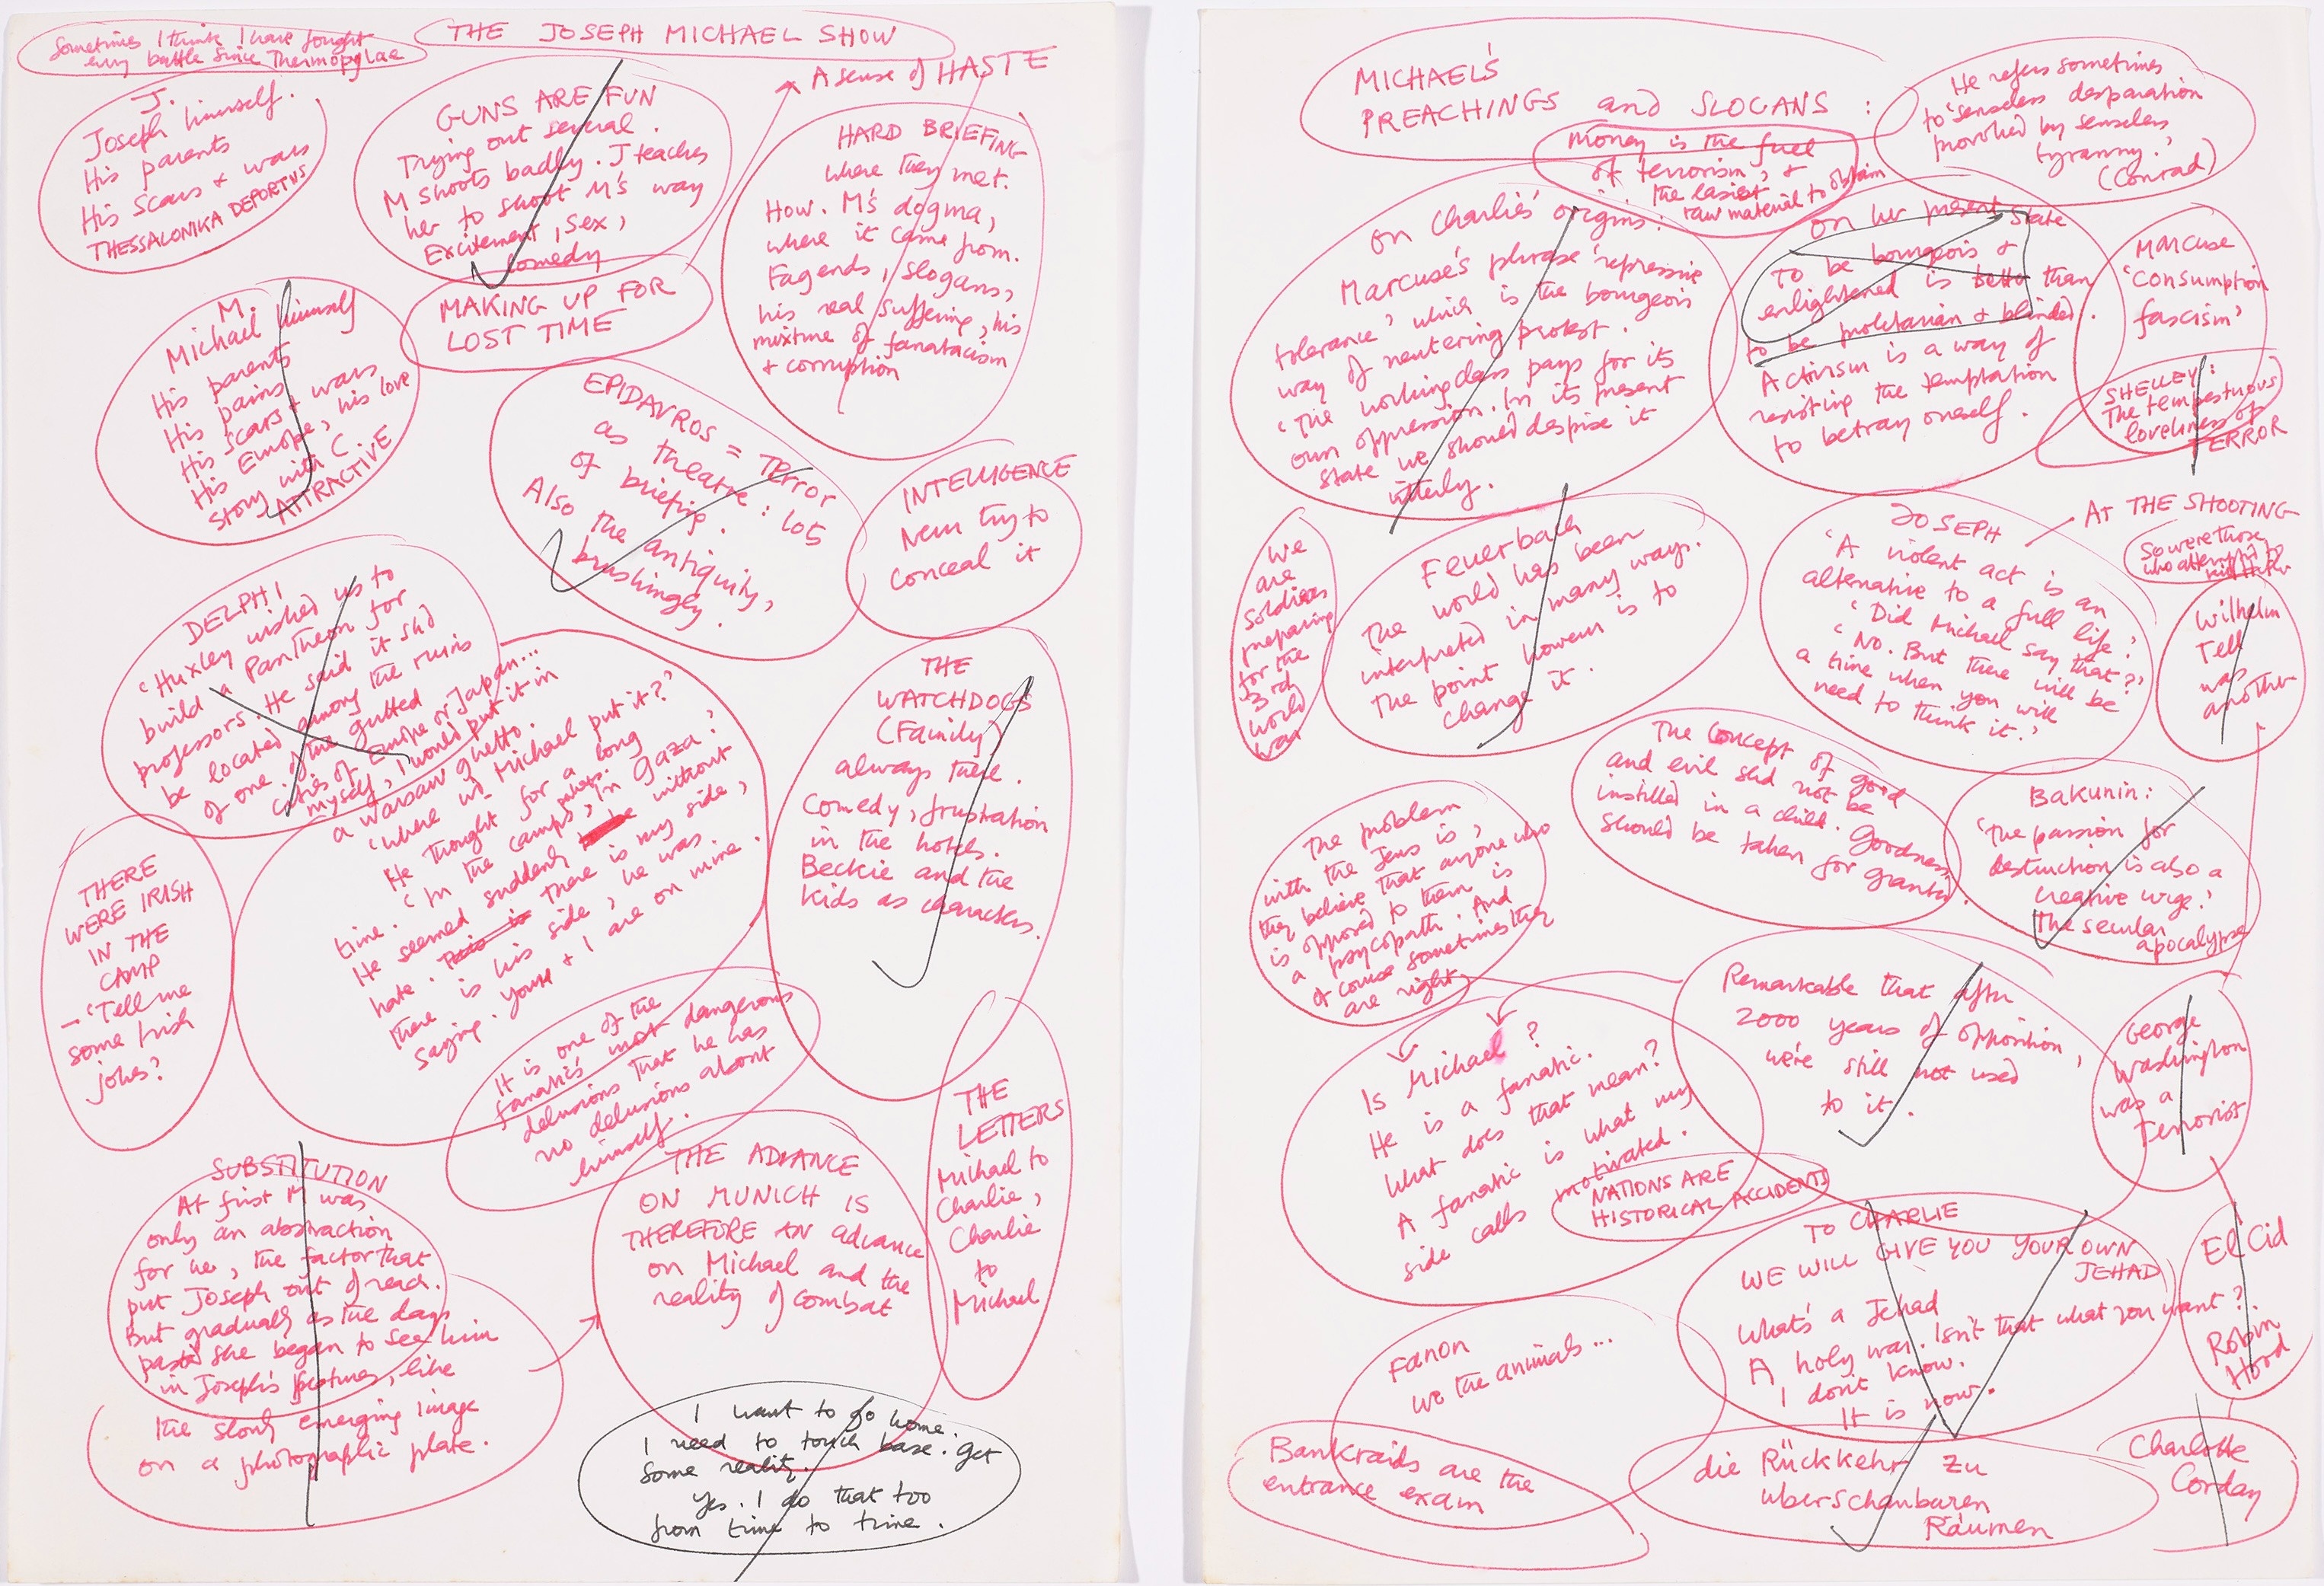 Sometimes I think I have fought
every battle since Thermopylae
THE JOSEPH MICHAEL SHOW
A sense of HASTE
J.
Joseph himself.
His parents
His scars + wars
THESSALONIKA DEPORTUS
GUNS ARE FUN
Trying out several.
M shoots badly. J teaches
her to shoot M's way
Excitement, sex,
comedy
HARD BRIEFING
where they met.
How. M's dogma,
where it came from.
Fagends, slogans,
his real suffering, his
mixture of fanatacism
+ corruption
MAKING UP FOR
LOST TIME
M.
Michael himself
His parents
His pains
His scars + wars
His Europe, his love
story with C
ATTRACTIVE
EPIDAVROS = Terror
as theatre: lots
of briefing.
Also the antiquity,
brushingly.
INTELLIGENCE
Never try to
conceal it
DELPHI
'Huxley wished us to
build a Pantheon for
professors. He said it shd
be located among the ruins
of one of the gutted
cities of Europe or Japan...
myself, I would put it in
a Warsaw ghetto.
'Where wd Michael put it?'
He thought for a long
time. 'In the camps, in Gaza.'
He seemed suddenly to be without
hate. This is there is my side,
there is his side, he was
saying. You + I are on mine.
THE
WATCHDOGS
(Family)
always there.
Comedy, frustration
in the hotels.
Beckie and the
kids as characters.
THERE
WERE IRISH
IN THE
CAMP
– 'Tell me
some Irish
jokes?
It is one of the
fanatic's most dangerous
delusions that he has
no delusions about
himself.
THE
LETTERS
Michael to
Charlie,
Charlie
to
Michael
SUBSTITUTION
At first M was
only an abstraction
for her, the factor that
put Joseph out of reach.
But gradually as the days
past she began to see him
in Joseph's features, like
the slowly emerging image
on a photographic plate.
THE ADVANCE
ON MUNICH IS
THEREFORE AN advance
on Michael and the
reality of combat
I want to go home.
I need to touch base. Get
some reality.
Yes. I do that too
from time to time.
MICHAEL'S
PREACHINGS and SLOGANS:
He refers sometimes
to 'senseless desparation
provoked by senseless
tyranny.'
(Conrad)
Money is the fuel
of terrorism, &
the easiest
raw material to obtain
On Charlie's origins:
Marcuse's phrase 'repressive
tolerance' which is the bourgeois
way of neutering protest.
'The working class pays for its
own oppression. In its present
state we should despise it
utterly.
On her present State
To be bourgeois +
enlightened is better than
to be proletarian + blinded.
to be
Activism is a way of
resisting the temptation
to betray oneself.
Marcuse
'consumption
fascism'
SHELLEY:
The tempestuous
loveliness of
TERROR
We
are
soldiers
preparing
for the
3rd
world
war
Feuerbach
The world has been
interpreted in many ways.
The point however is to
change it.
JOSEPH
'A violent act is an
alternative to a full life.'
'Did Michael say that?'
'No. But there will be
a time when you will
need to think it.'
AT THE SHOOTING
So were those
who attempted to
kill Hitler
Wilhelm
Tell
was
another
The problem
with the Jews is,
they believe that anyone who
is opposed to them is
a psycopath. And
of course sometimes they
are right.
The concept of good
and evil shd not be
instilled in a child. Goodness
should be taken for granted.
Bakunin:
'the passion for
destruction is also a
creative urge.'
The secular
apocalypse
Is Michael?
He is a fanatic.
What does that mean?
A fanatic is what my
side calls motivated.
Remarkable that after
2000 years of opposition,
we're still not used
to it.
George
Washington
was a
Terrorist
NATIONS ARE
HISTORICAL ACCIDENTS
TO CHARLIE
WE WILL GIVE YOU YOUR OWN
JEHAD
What's a Jehad
A holy war. Isn't that what you want?
I don't know.
It is now.
El Cid
Robin
Hood
Fanon
We the animals...
Bankraids are the
entrance exam
die Rückkehr zu
überschaubaren
Räumen
Charlotte
Corday